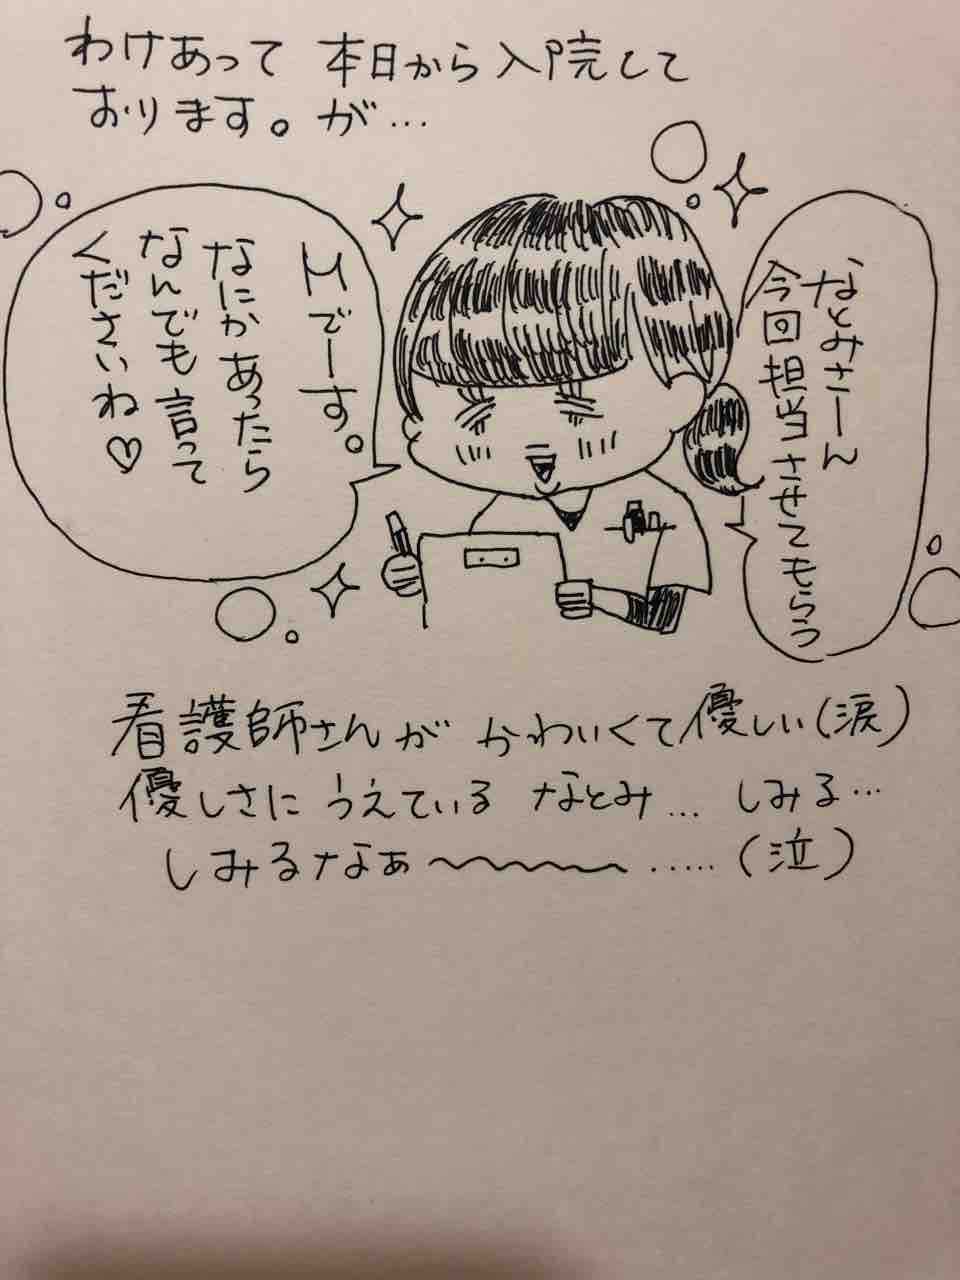 わけあって 本日から入院して
おります。が…
なとみさーん
今回担当させてもらう
Mでーす。
なにかあったら
なんでも言って
くださいね♡
看護師さんが かわいくて優しい(涙)
優しさに うえている なとみ… しみる…
しみるなぁ〜〜〜〜……(泣)